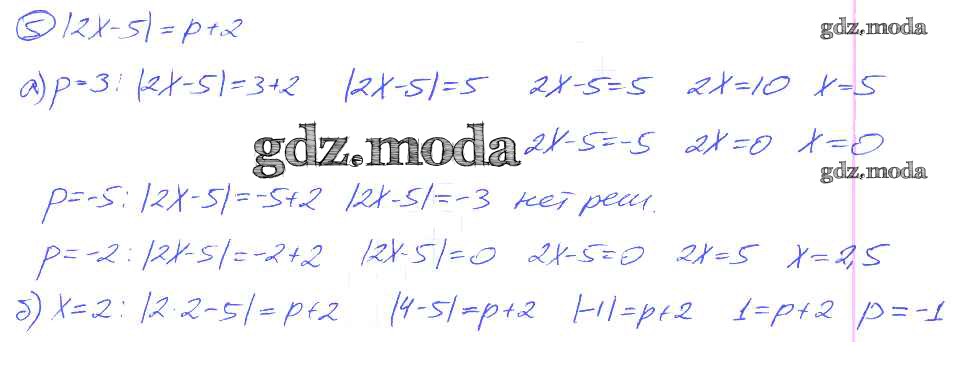 ⑤ |2x-5|=p+2
gdz.moda
а) p=3: |2x-5|=3+2 |2x-5|=5 2x-5=5 2x=10 x=5
gdz.moda 2x-5=-5 2x=0 x=0
gdz.moda
p=-5: |2x-5|=-5+2 |2x-5|=-3 нет реш.
p=-2: |2x-5|=-2+2 |2x-5|=0 2x-5=0 2x=5 x=2,5
б) x=2: |2·2-5|=p+2 |4-5|=p+2 |-1|=p+2 1=p+2 p=-1